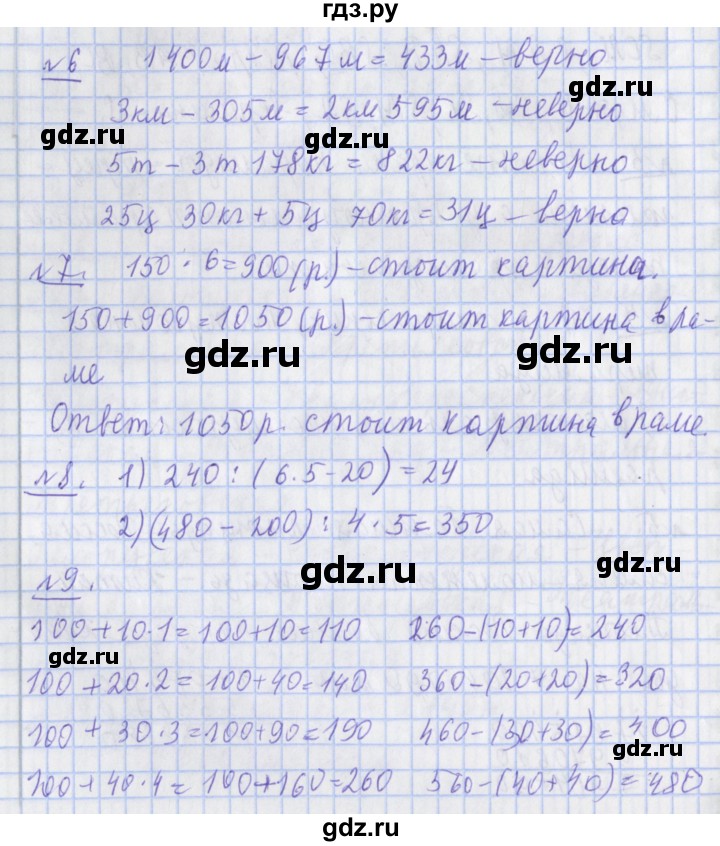 гдз.ру
№6 1400м - 967м = 433м - верно
3км - 305м = 2км 595м - неверно
gdz.ru gdz.ru
5т - 3т 178кг = 822кг - неверно
25ц 30кг + 5ц 70кг = 31ц - верно
gdz.ru gdz.ru
№7. 150 · 6 = 900(р.) - стоит картина.
150 + 900 = 1050(р.) - стоит картина в ра-
gdz.ru gdz.ru
ме
Ответ: 1050р. стоит картина в раме.
gdz.ru gdz.ru
№8. 1) 240 : (6·5-20) = 24
2) (480 - 200) : 4 · 5 = 350
gdz.ru gdz.ru
№9.
100 + 10·1 = 100+10 = 110 260-(10+10) = 240
gdz.ru
100 + 20·2 = 100+40 = 140 360-(20+20) = 320
100 + 30·3 = 100+90 = 190 460-(30+30) = 400
gdz.ru gdz.ru
100 + 40·4 = 100+160 = 260 560-(40+40) = 480
gdz.ru gdz.ru